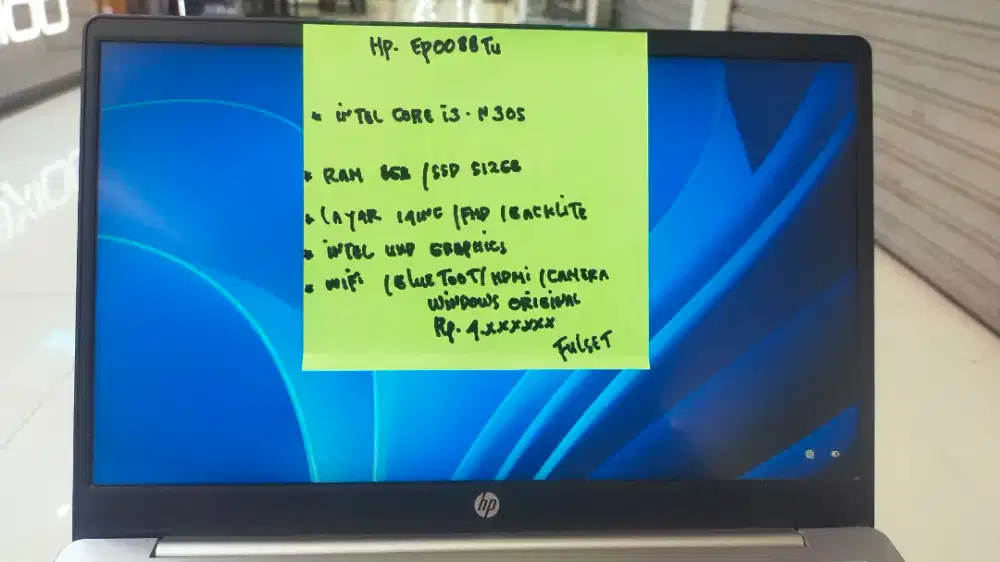 HP. Ep0088TU
* INTEL CORE i3 - N305
* RAM 8GB / SSD 512GB
* LAYAR 14INC / FHD / BACKLITE
* INTEL UHD GRAPHICS
* WIFI / BLUETOOT / HDMI / CAMERA
WINDOWS ORIGINAL
Rp. 4.xxxxxx
FULSET
hp